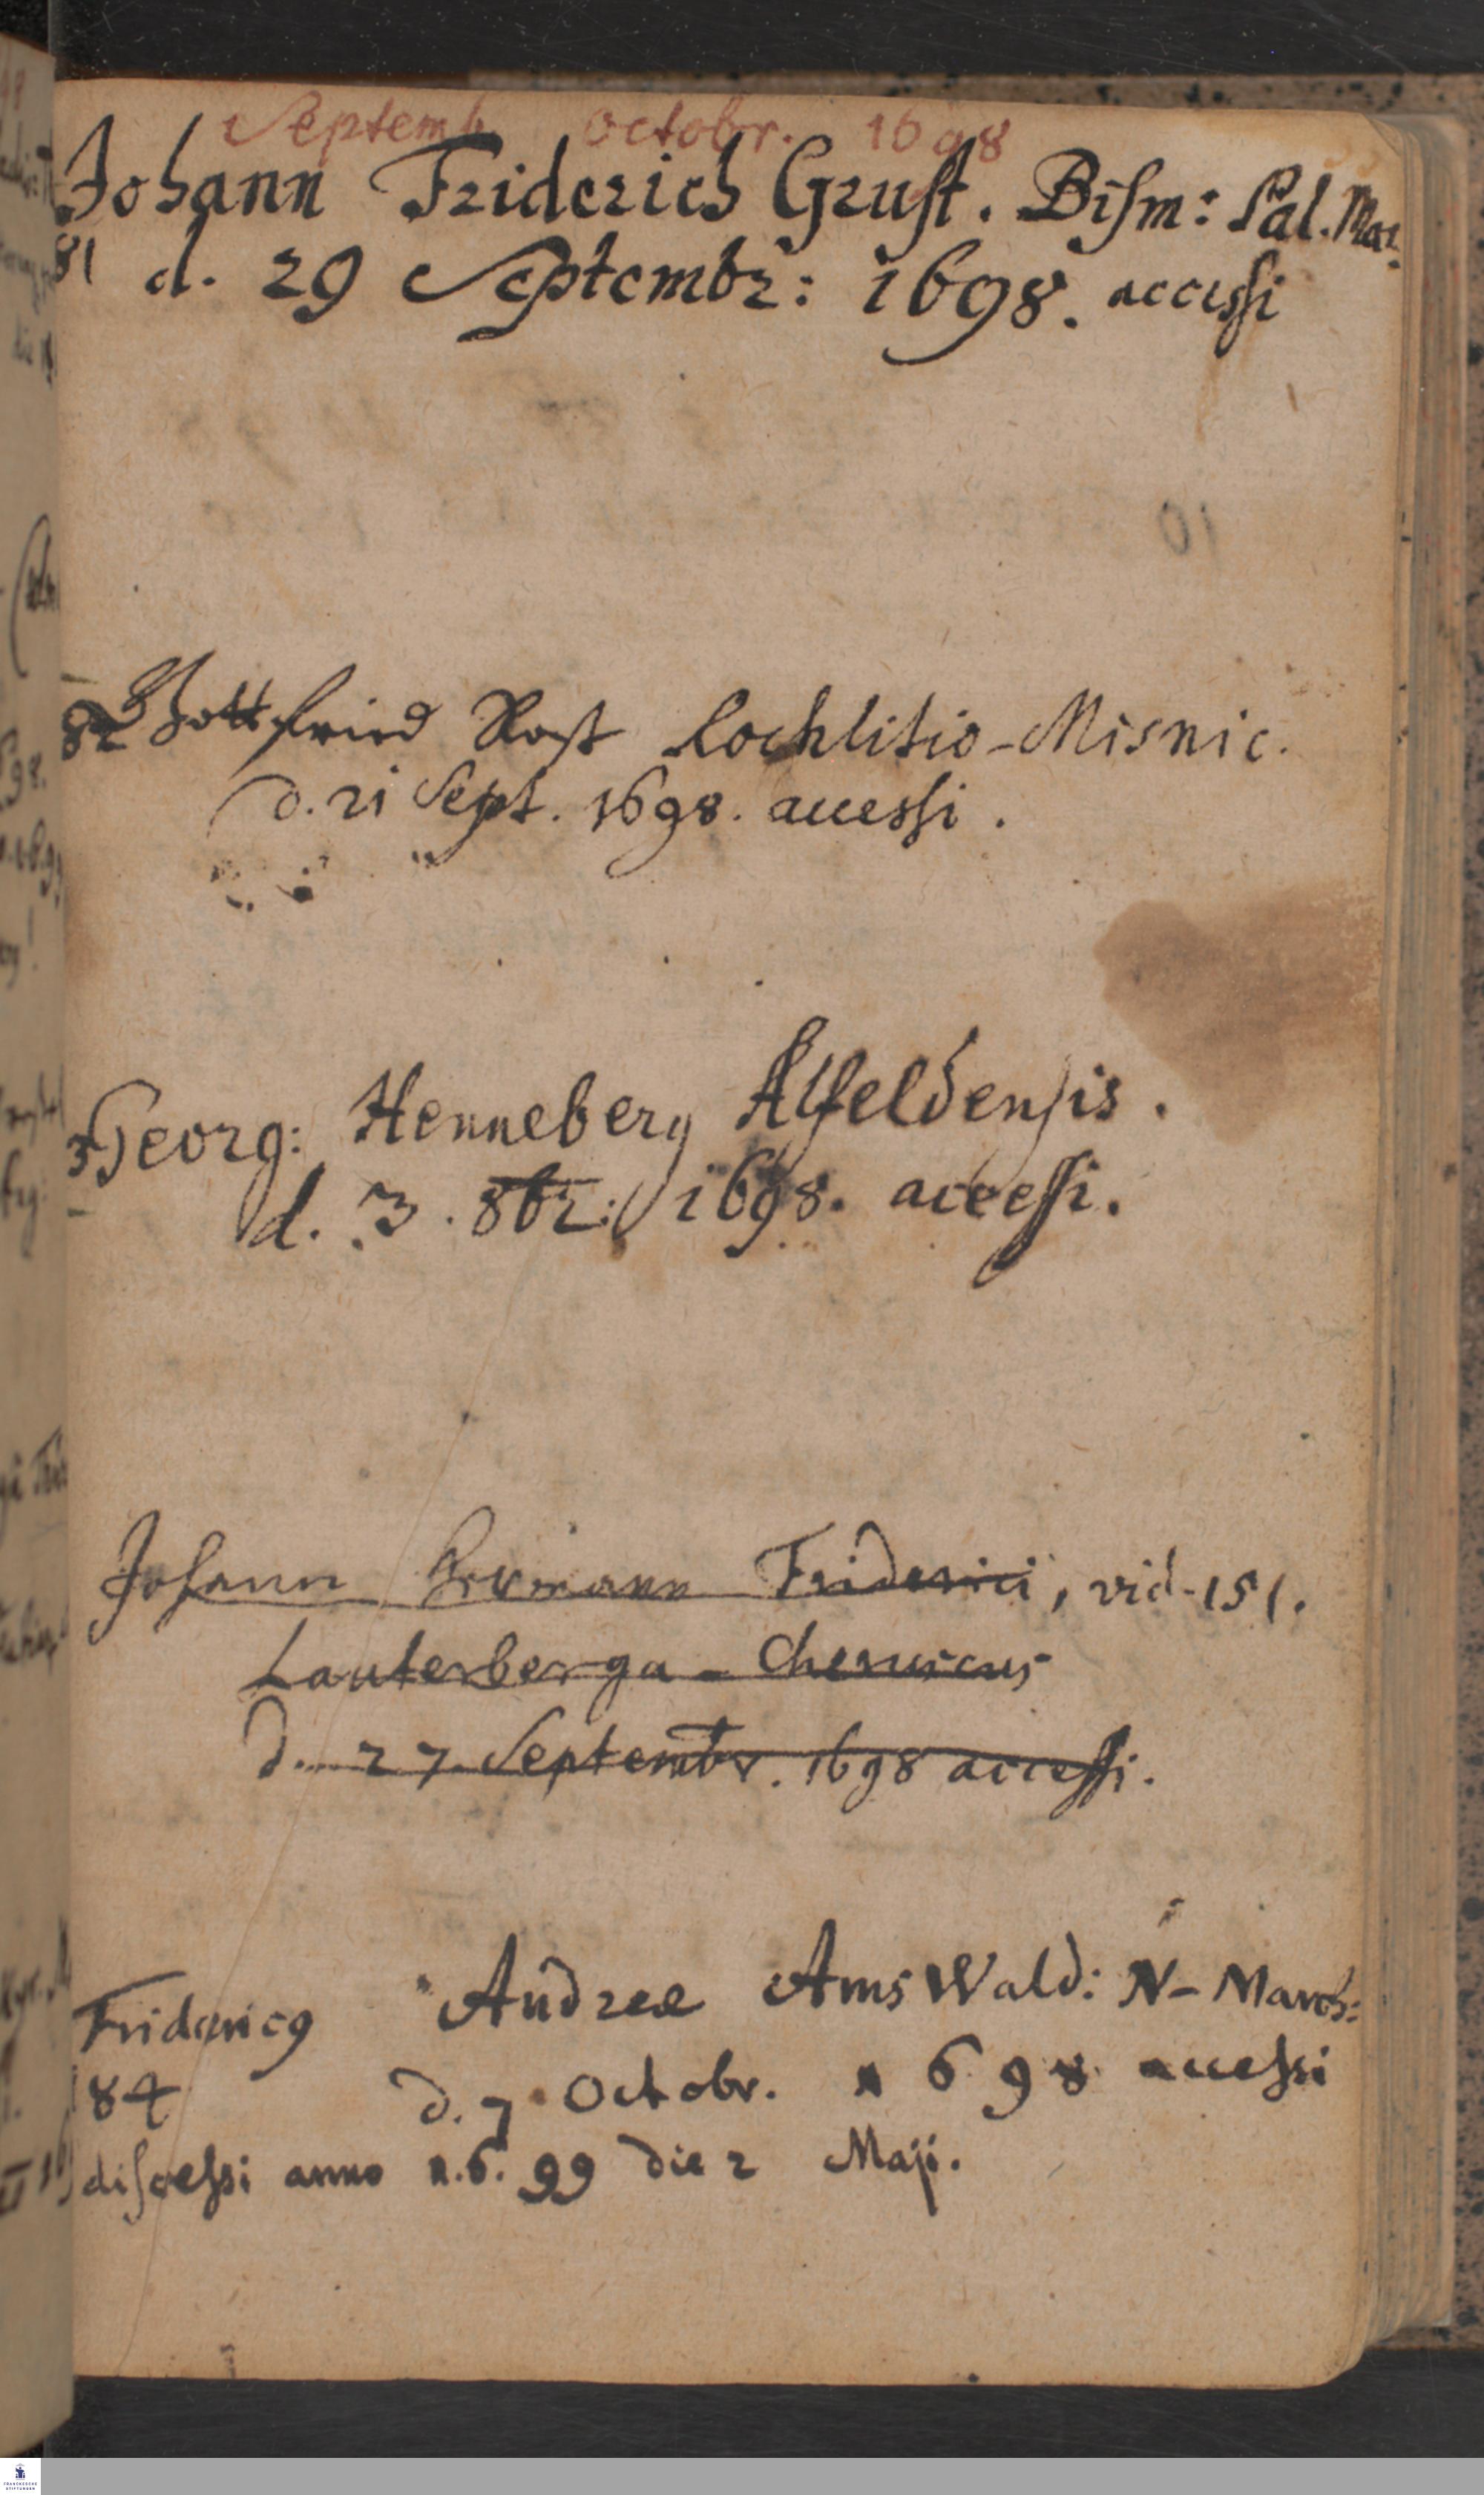 Septemb. Octobr. 1698
Johann Friderich Grust. Bism: Pal. Mar.
81 d. 29 Septembr: 1698. accessi
82 Gottfried Rost Rochlitio-Misnic.
d. 21 Sept. 1698. accessi.
Georg: Henneberg Alfeldensis.
d. 3. 8br: 1698. accessi.
Johann Hermann Friderici, vid. 151.
Lauterberga-Cheruscus
d. 27. Septembr. 1698 accessi.
Fridericg Andreæ AmsWald: N-March:
84 d. 7. Octobr. 1698 accessi
discessi anno 1.6.99 die 2 Maji.